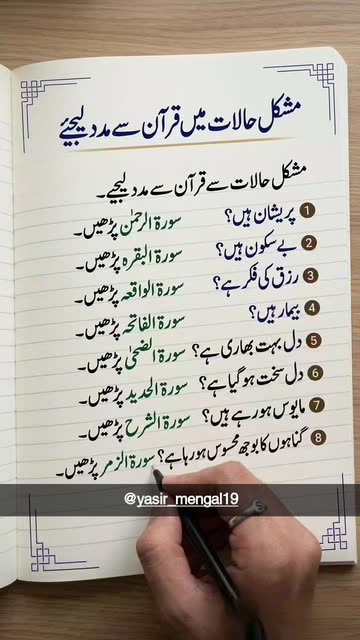 مشکل حالات میں قرآن سے مدد لیجئے
مشکل حالات سے قرآن سے مدد لیجیے۔
1 پریشان ہیں؟ سورۃ الرحمٰن پڑھیں۔
2 بے سکون ہیں؟ سورۃ البقرہ پڑھیں۔
3 رزق کی فکر ہے؟ سورۃ الواقعہ پڑھیں۔
4 بیمار ہیں؟ سورۃ الفاتحہ پڑھیں۔
5 دل بہت بھاری ہے؟ سورۃ الضحیٰ پڑھیں۔
6 دل سخت ہو گیا ہے؟ سورۃ الحدید پڑھیں۔
7 مایوس ہو رہے ہیں؟ سورۃ الشرح پڑھیں۔
8 گناہوں کا بوجھ محسوس ہو رہا ہے؟ سورۃ الزمر پڑھیں۔
@yasir_mengal19